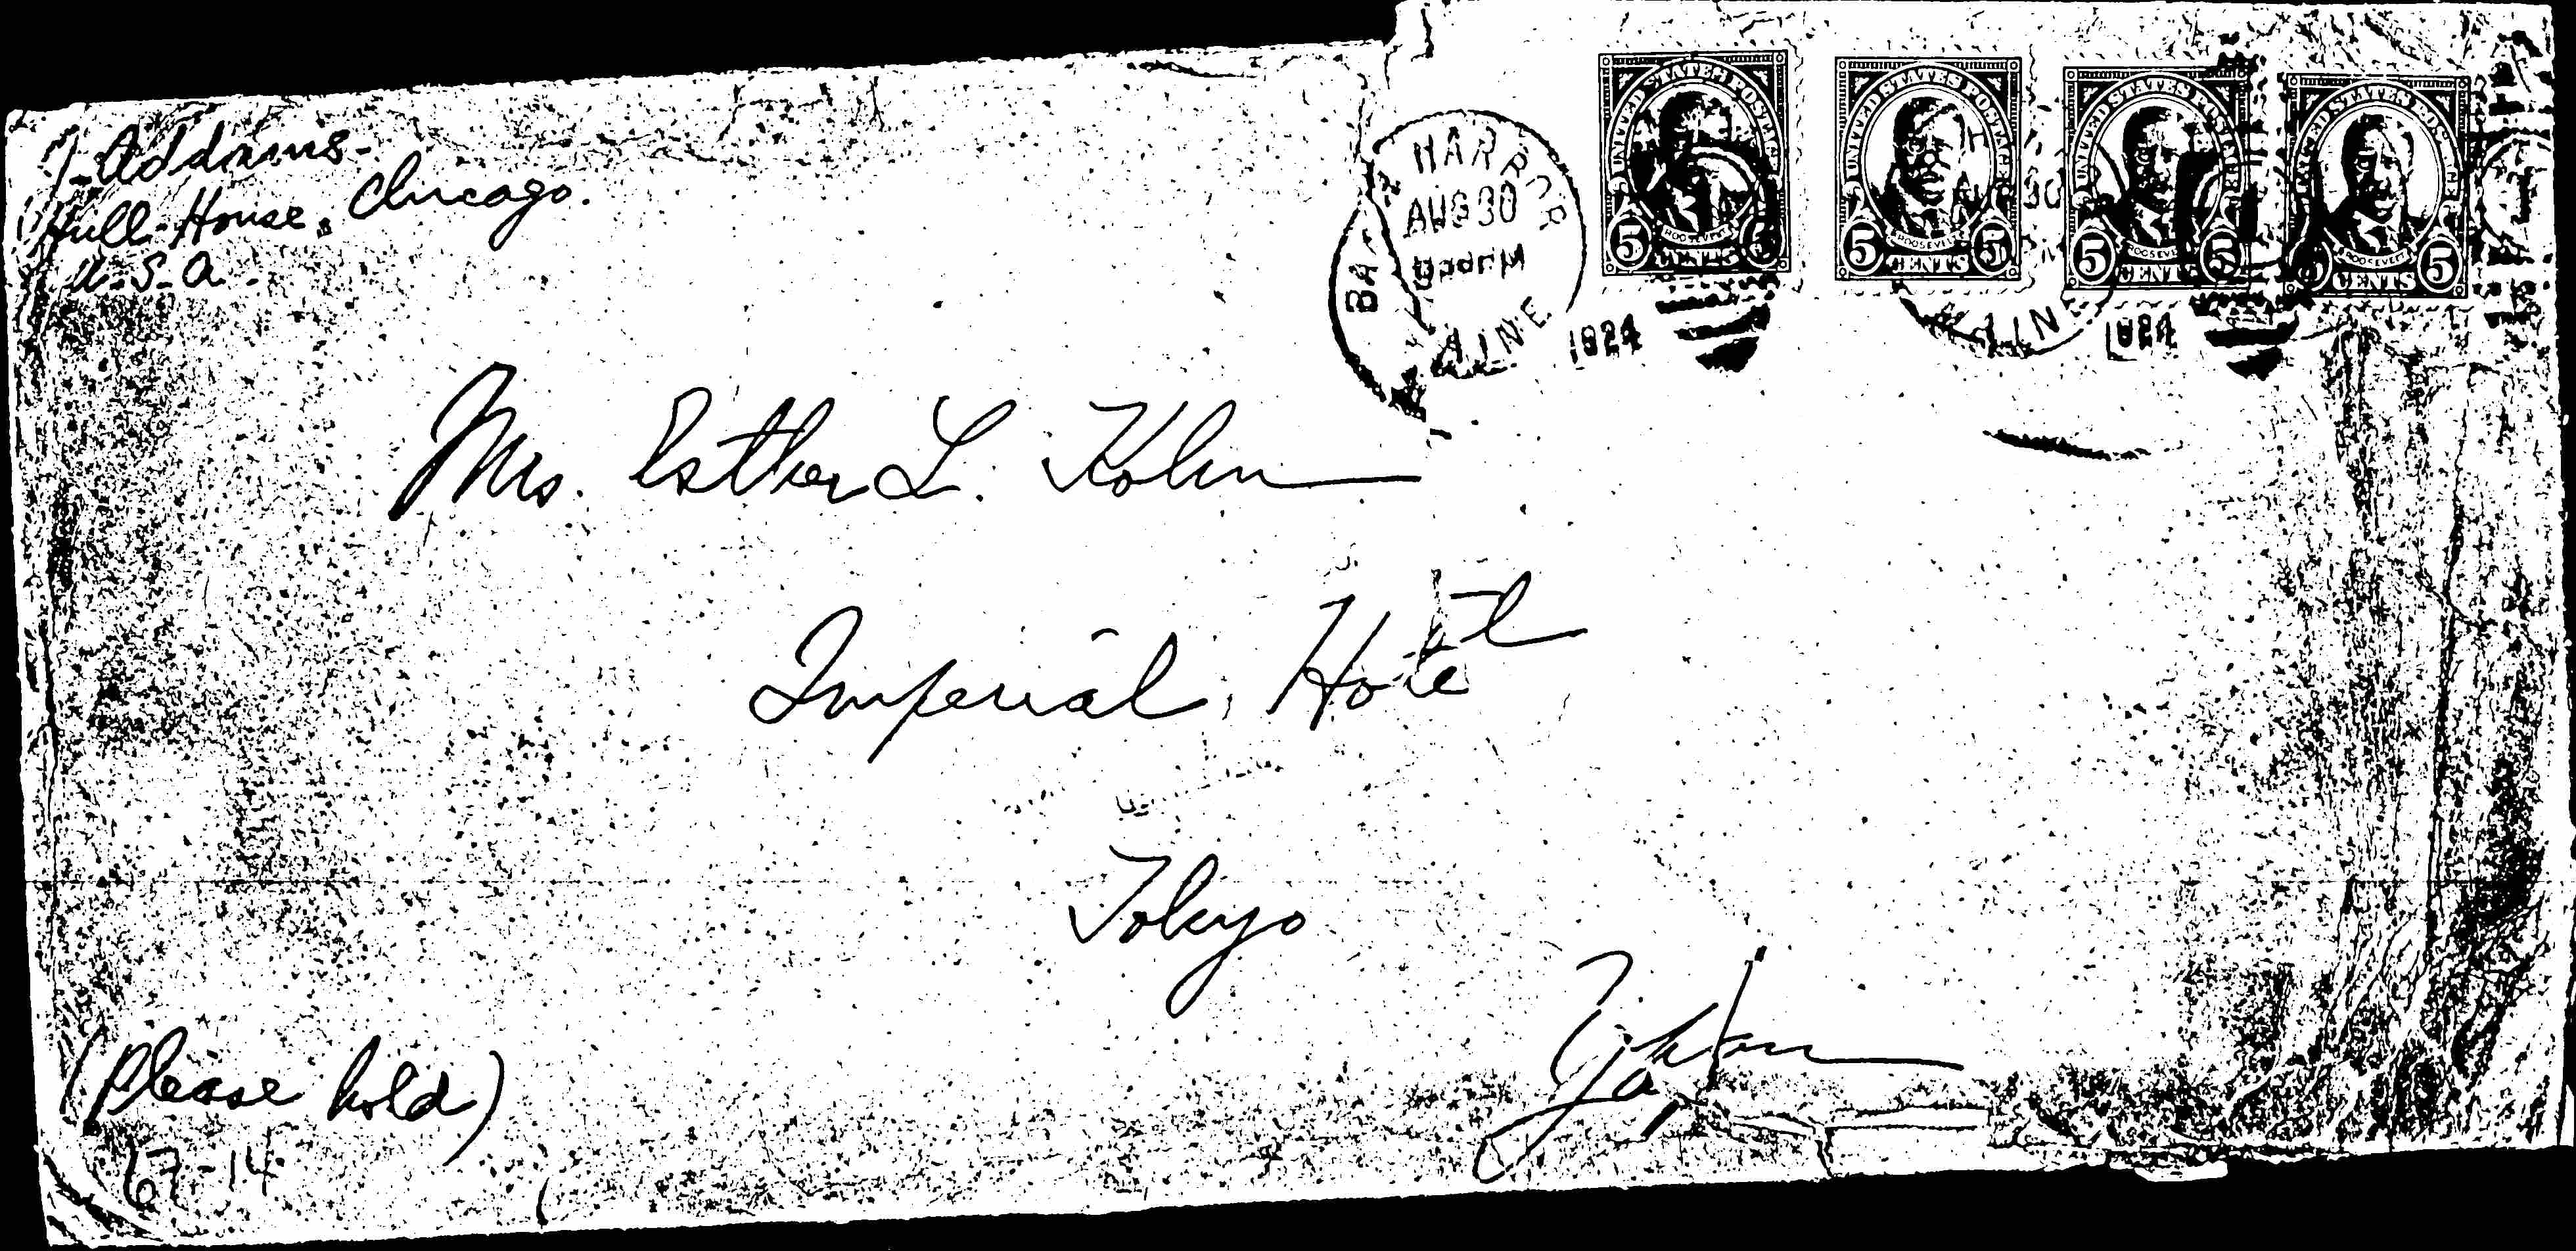 J. Addams -
Hull-House, Chicago.
U.S.A.
BAR HARBOR
AUG 30
MAINE
1924
UNITED STATES POSTAGE
ROOSEVELT
5 CENTS 5
UNITED STATES POSTAGE
ROOSEVELT
5 CENTS 5
UNITED STATES POSTAGE
ROOSEVELT
5 CENTS 5
UNITED STATES POSTAGE
ROOSEVELT
5 CENTS 5
AUG 30
MAINE
1924
Mrs. Esther L. Kohn
Imperial Hotel
Tokyo
Japan
(Please hold)
67-14